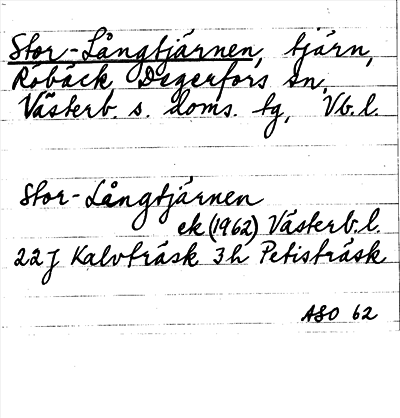 Stor-Långtjärnen, tjärn,
Röbäck, Degerfors sn,
Västerb. s. doms. tg, Vb. l.
Stor-Långtjärnen
ek (1962) Västerb. l.
22J Kalvträsk 3h Petisträsk
ASO 62